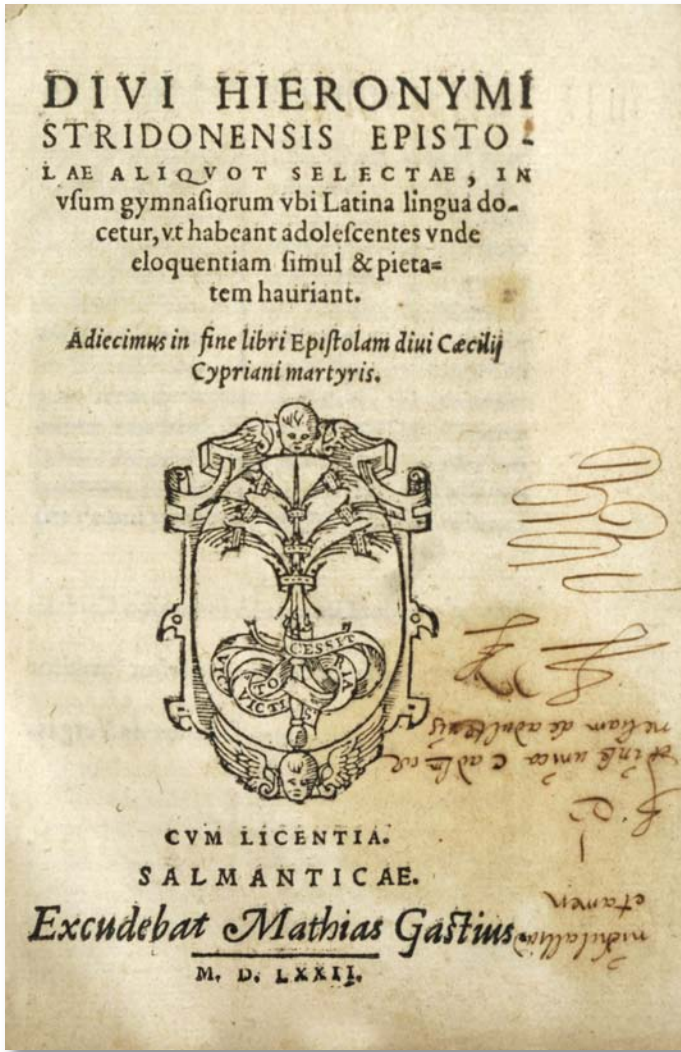 DIVI HIERONYMI
STRIDONENSIS EPISTO-
LAE ALIQVOT SELECTAE, IN
vſum gymnaſiorum vbi Latina lingua do-
cetur, vt habeant adoleſcentes vnde
eloquentiam ſimul & pieta=
tem hauriant.
Adiecimus in fine libri Epiſtolam diui Cæcilij
Cypriani martyris.
CESSIT
VICTO
RIA
CVM LICENTIA.
SALMANTICAE.
Excudebat Mathias Gaſtius.
M. D. LXXII.
etamen